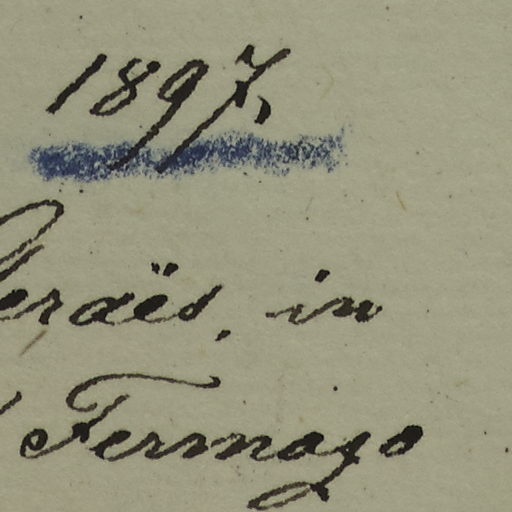 1897,
Geraës, in
Fermazo